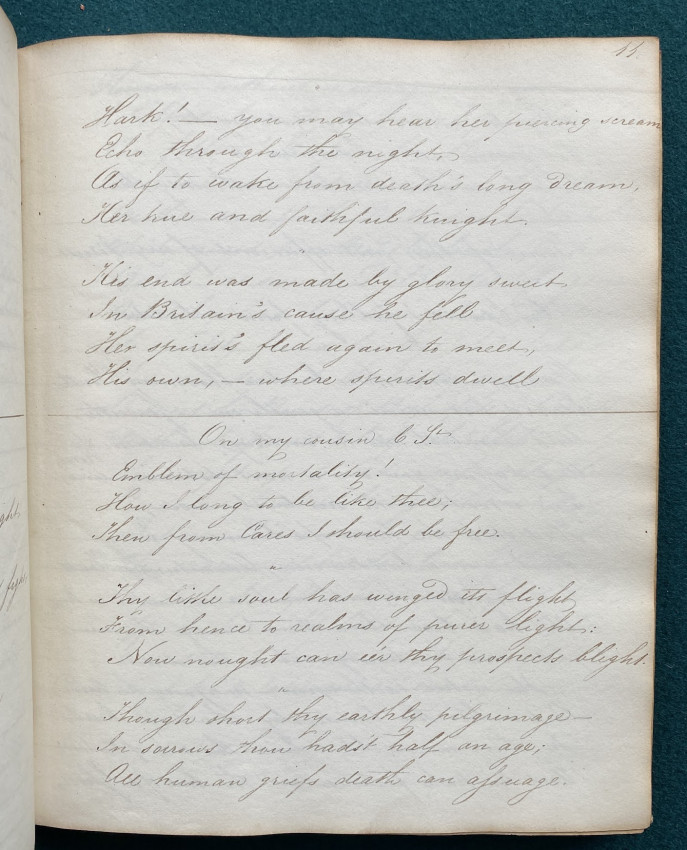 11
Hark! — you may hear her piercing scream
Echo through the night,
As if to wake from death's long dream,
Her true and faithful knight.
His end was made by glory sweet
In Britain's cause he fell
Her spirit's fled again to meet,
His own, — where spirits dwell
On my cousin C St.
Emblem of mortality!
How I long to be like thee;
Then from Cares I should be free.
Thy little soul has winged its flight
From hence to realms of purer light:
Now nought can e'er thy prospects blight.
Though short thy earthly pilgrimage —
In sorrows thou hadst half an age;
All human griefs death can assuage.